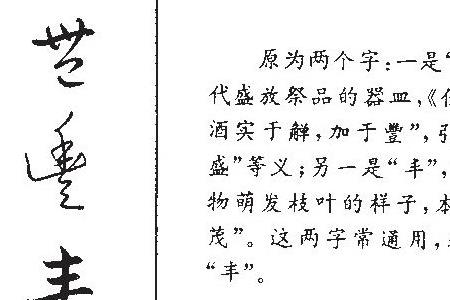 原为两个字：一是“
代盛放祭品的器皿，《
酒实于觯，加于豐”，引
盛”等义；另一是“丰”，
物萌发枝叶的样子，本
茂”。这两字常通用，
“丰”。